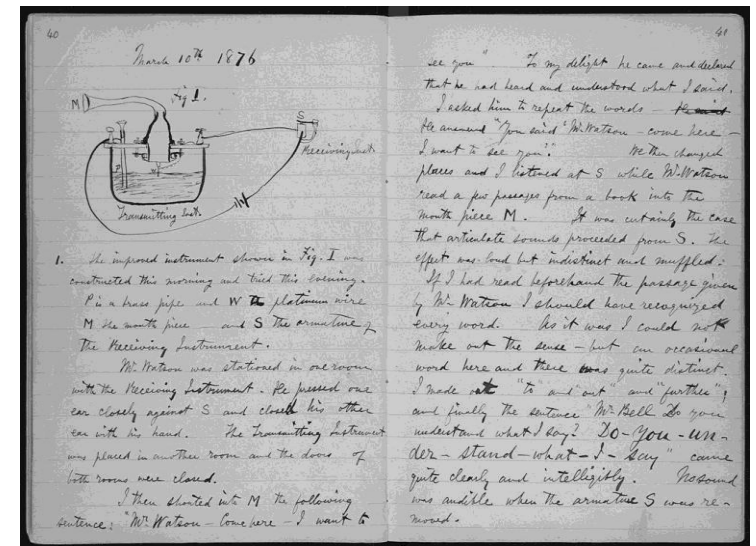 40
March 10th 1876
Fig 1.
M
S
Receiving Inst.
P
W
Transmitting Inst.
1. The improved instrument shown in Fig. I was
constructed this morning and tried this evening.
P is a brass pipe and W the platinum wire
M the mouth piece and S the armature of
the Receiving Instrument.
Mr. Watson was stationed in one room
with the Receiving Instrument. He pressed one
ear closely against S and closed his other
ear with his hand. The Transmitting Instrument
was placed in another room and the doors of
both rooms were closed.
I then shouted into M the following
sentence: "Mr. Watson – Come here – I want to
41
see you" To my delight he came and declared
that he had heard and understood what I said.
I asked him to repeat the words – He said
He answered "You said 'Mr. Watson – come here –
I want to see you'." We then changed
places and I listened at S while Mr. Watson
read a few passages from a book into the
mouth piece M. It was certainly the case
that articulate sounds proceeded from S. The
effect was loud but indistinct and muffled.
If I had read beforehand the passage given
by Mr. Watson I should have recognized
every word. As it was I could not
make out the sense – but an occasional
word here and there was quite distinct.
I made out "to" and "out" and "further";
and finally the sentence "Mr. Bell Do you
understand what I say? Do–you–un–
der–stand–what–I–say" came
quite clearly and intelligibly. No sound
was audible when the armature S was re–
moved.